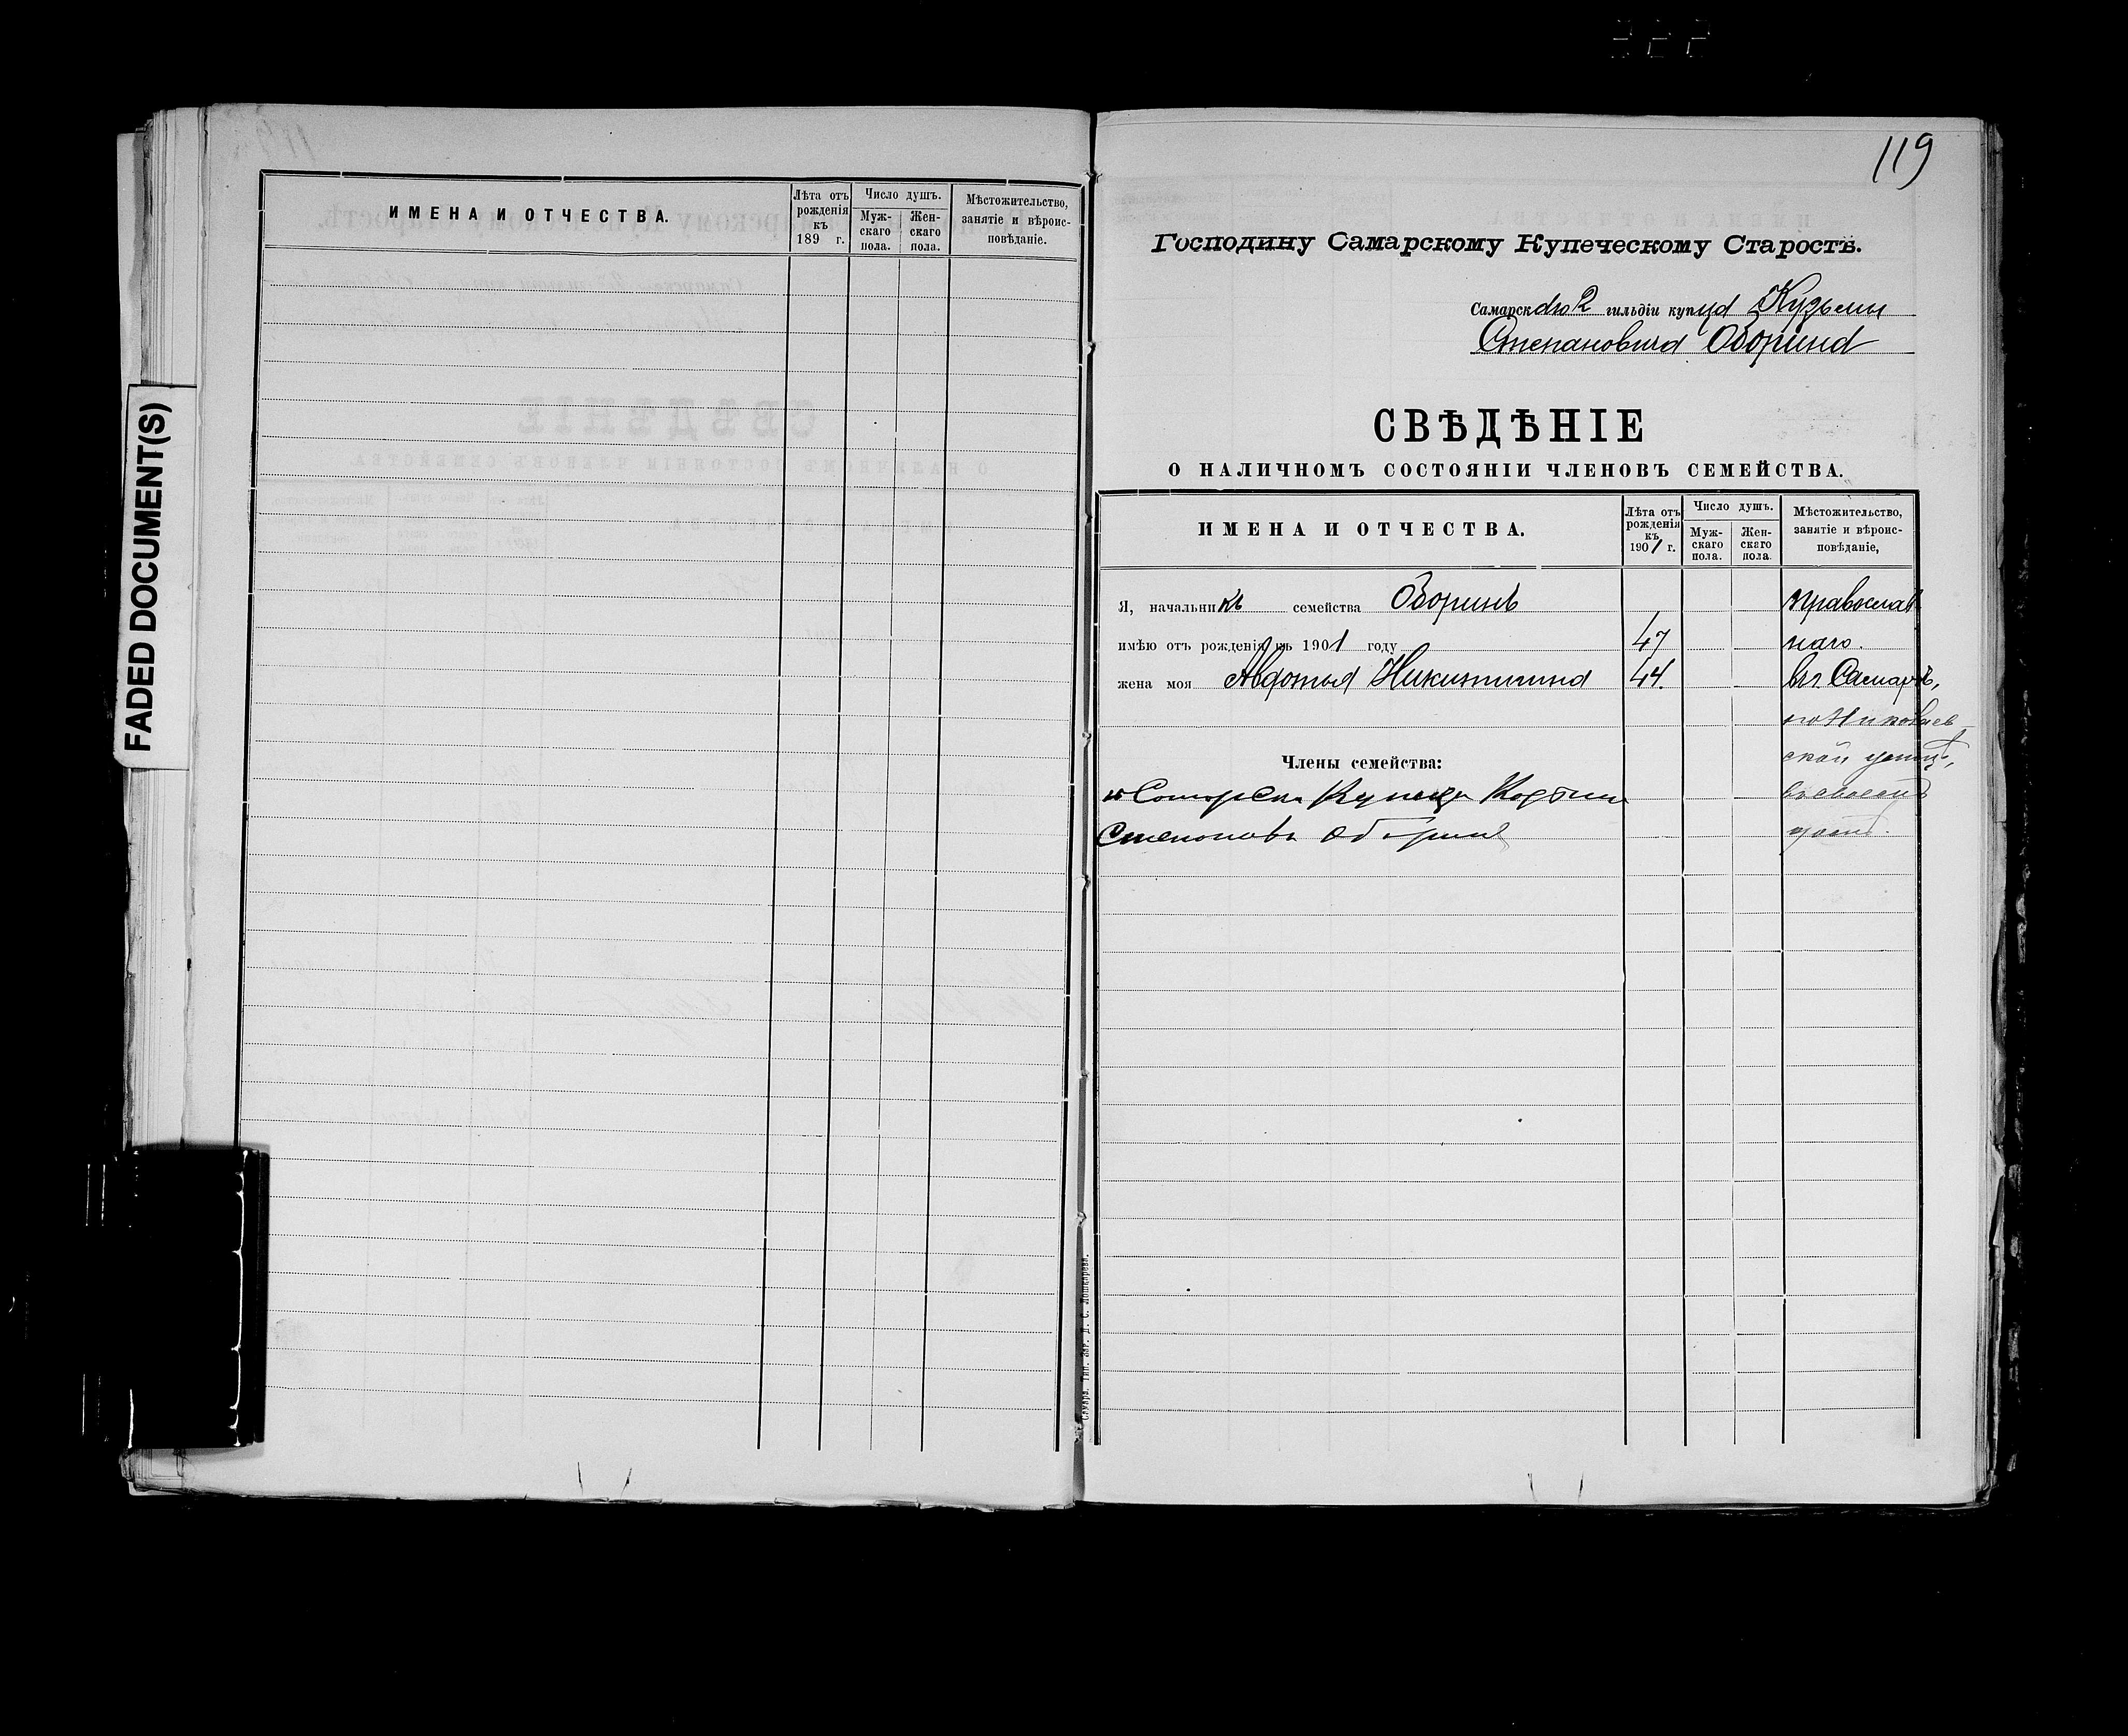 119
FADED DOCUMENT(S)
ИМЕНА И ОТЧЕСТВА.
Лѣта отъ рожденія къ 189 г.
Число душъ.
Муж-скаго пола.
Жен-скаго пола.
Мѣстожительство, занятіе и вѣроис-повѣданіе.
Господину Самарскому Купеческому Старостѣ.
Самарскаго 2 гильдіи купца Кузьмы
Степановича Оборина
СВѢДѢНІЕ
О НАЛИЧНОМЪ СОСТОЯНІИ ЧЛЕНОВЪ СЕМЕЙСТВА.
ИМЕНА И ОТЧЕСТВА.
Лѣта отъ рожденія къ 1901 г.
Число душъ.
Муж-скаго пола.
Жен-скаго пола.
Мѣстожительство, занятіе и вѣроис-повѣданіе,
Я, начальникъ семейства Оборинъ православ
имѣю отъ рожденія къ 1901 году 47 наго.
жена моя Авдотья Никитична 44. въ г. Самарѣ,
по Николаев
Члены семейства: ской улицѣ,
Купецъ въ своемъ
Степановъ Оборинъ домѣ.
Самара. Тип. Заг. Д. С. Лошкарева.